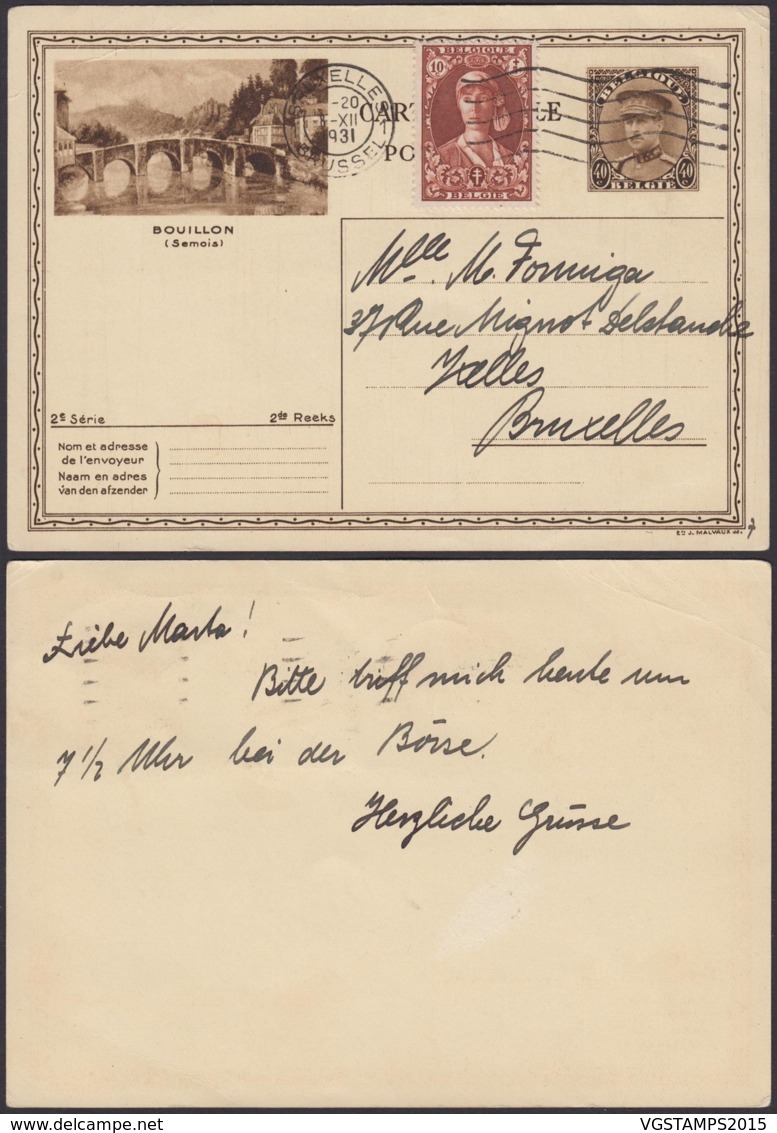 BRUXELLES 1
-20
-XII
1931
BRUSSEL
CART
LE
PO
BELGIQUE
10
BELGIE
BELGIQUE
40 40
BELGIE
BOUILLON
(Semois)
Mlle. M. Formiga
37 Rue Mignot Delstanche
Ixelles
Bruxelles
2e Série 2de Reeks
Nom et adresse
de l'envoyeur
Naam en adres
van den afzender
ED J. MALVAUX
Liebe Marta!
Bitte triff mich heute um
7 1/2 Uhr bei der Börse.
Herzliche Grüsse
VGSTAMPS2015